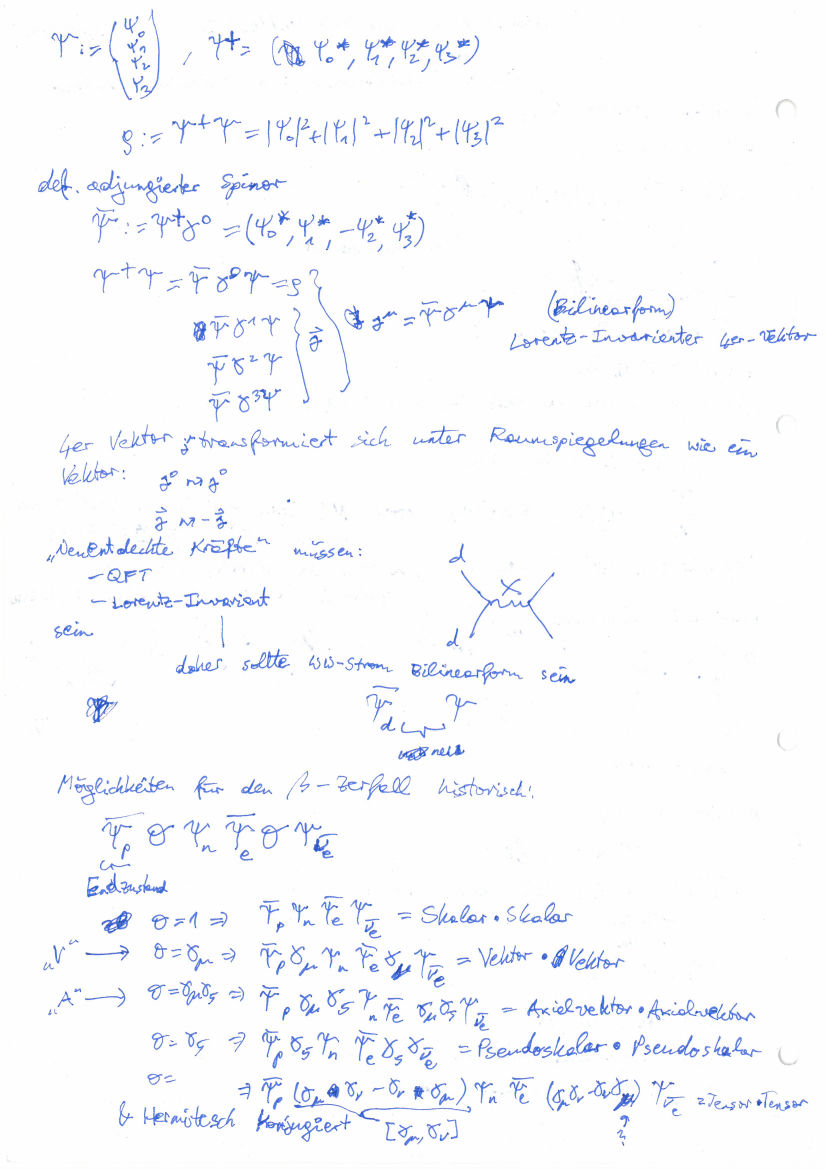 Ψ := (ψ₀ ψ₁ ψ₂ ψ₃) , Ψ⁺ = (ψ₀*, ψ₁*, ψ₂*, ψ₃*)
ρ := Ψ⁺Ψ = |ψ₀|² + |ψ₁|² + |ψ₂|² + |ψ₃|²
def. adjungierter Spinor
Ψ̄ := Ψ⁺γ⁰ = (ψ₀*, ψ₁*, -ψ₂*, ψ₃*)
Ψ⁺Ψ = Ψ̄ γ⁰ Ψ = ρ
Ψ̄ γ¹ Ψ
Ψ̄ γ² Ψ
Ψ̄ γ³ Ψ
j⃗
j^μ = Ψ̄ γ^μ Ψ (Bilinearform)
Lorentz-Invarianter 4er-Vektor
4er Vektor j transformiert sich unter Raumspiegelungen wie ein
Vektor: j⁰ ⇝ j⁰
j⃗ ⇝ -j⃗
„Neuentdeckte Kräfte" müssen:
- QFT
- Lorentz-Invariant
sein
d
X
d
daher sollte WW-Strom Bilinearform sein
Ψ̄_d Ψ
neu
Möglichkeiten für den β-Zerfall historisch:
Ψ̄_p σ Ψ_n Ψ̄_e σ Ψ_ν̄e
Endzustand
σ = 1 ⇒ Ψ̄_p Ψ_n Ψ̄_e Ψ_ν̄e = Skalar · Skalar
„V" → σ = γ_μ ⇒ Ψ̄_p γ_μ Ψ_n Ψ̄_e γ_μ Ψ_ν̄e = Vektor · Vektor
„A" → σ = γ_μ γ₅ ⇒ Ψ̄_p γ_μ γ₅ Ψ_n Ψ̄_e γ_μ γ₅ Ψ_ν̄e = Axialvektor · Axialvektor
σ = γ₅ ⇒ Ψ̄_p γ₅ Ψ_n Ψ̄_e γ₅ γ_ν̄e = Pseudoskalar · Pseudoskalar
σ = ⇒ Ψ̄_p (γ_μ γ_ν - γ_ν γ_μ) Ψ_n Ψ̄_e (γ_μ γ_ν - γ_ν γ_μ) Ψ_ν̄e = Tensor · Tensor
& Hermitesch Konjugiert [γ_μ, γ_ν] ?